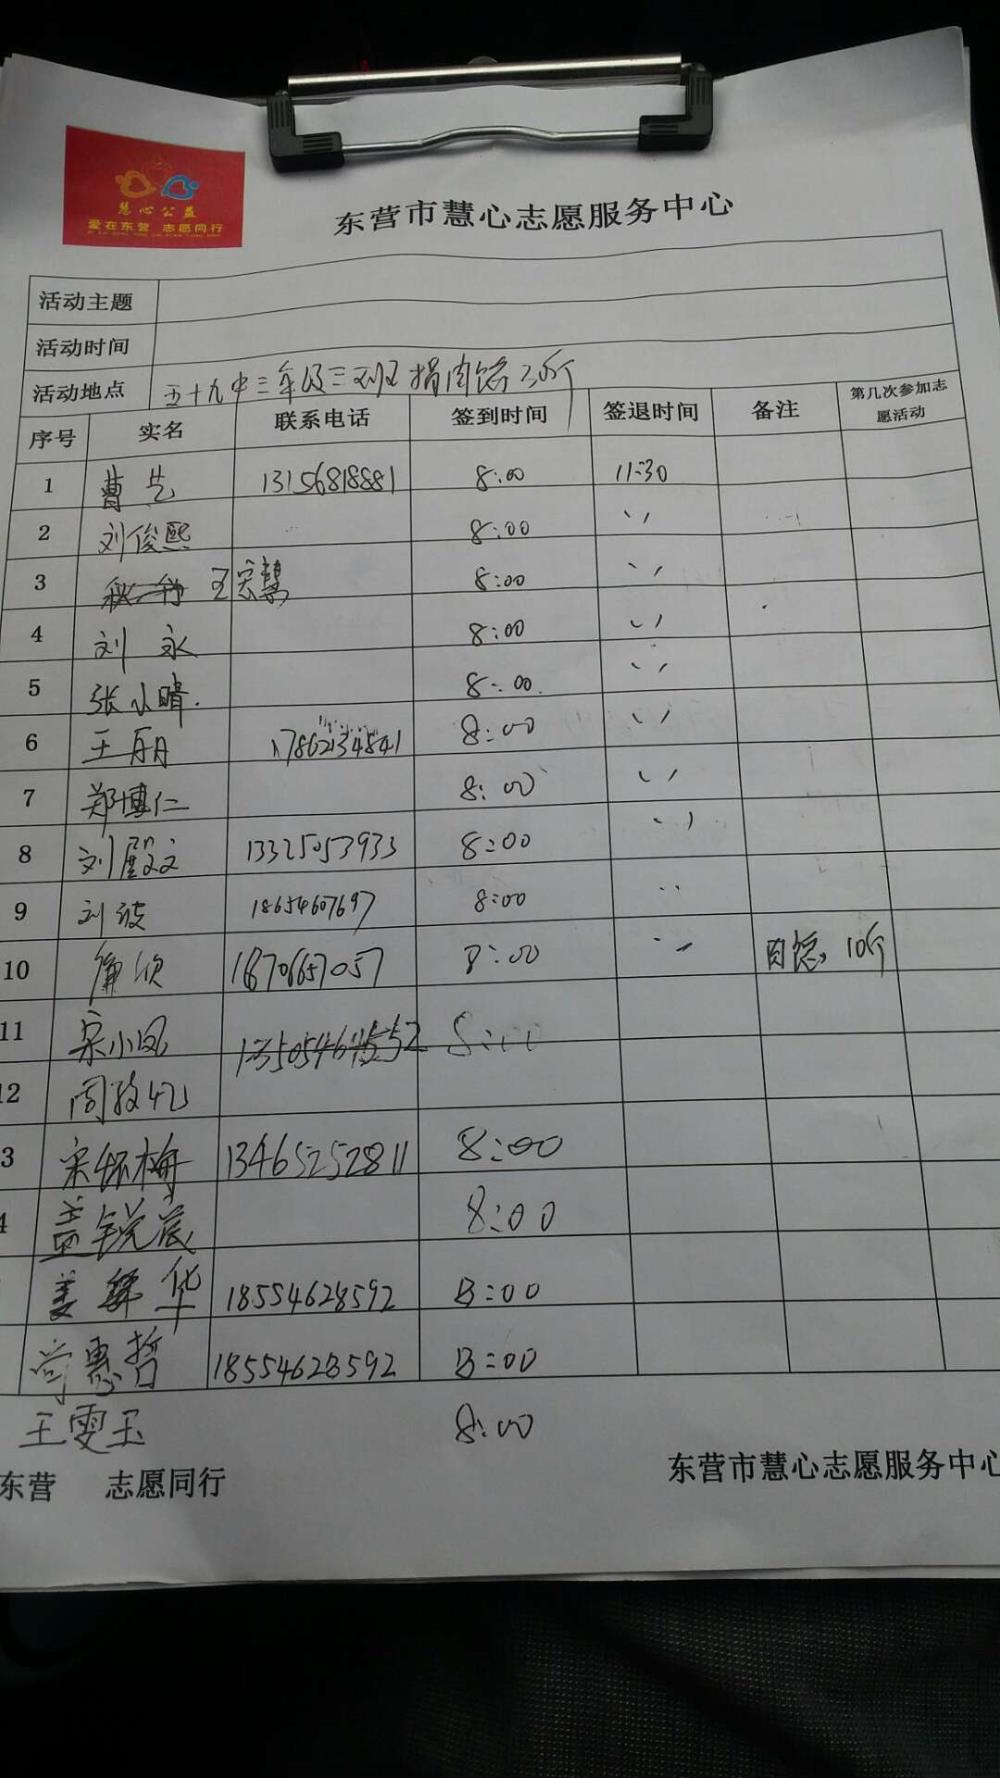 慧心公益
爱在东营 志愿同行
东营市慧心志愿服务中心
活动主题
活动时间
活动地点 五十九中三年级三班 捐肉馅 30斤
序号 实名 联系电话 签到时间 签退时间 备注 第几次参加志愿活动
1 曹 13156818881 8:00 11:30
2 刘俊熙 8:00 〃
3 王宏慧 8:00 〃
4 刘永 8:00 〃
5 张小晴. 8:00 〃
6 王丽 17862134841 8:00 〃
7 郑博仁 8:00 〃
8 刘殿文 13325053933 8:00 〃
9 刘波 18654607697 8:00 〃
10 廉欣 18706657057 8:00 〃 肉馅 10斤
11 宋小凤 8:00
12 周
3 宋怀梅 13465252811 8:00
4 盖锐宸 8:00
姜 华 18554628592 8:00
尚惠哲 18554628592 8:00
王雯玉 8:00
东营 志愿同行 东营市慧心志愿服务中心